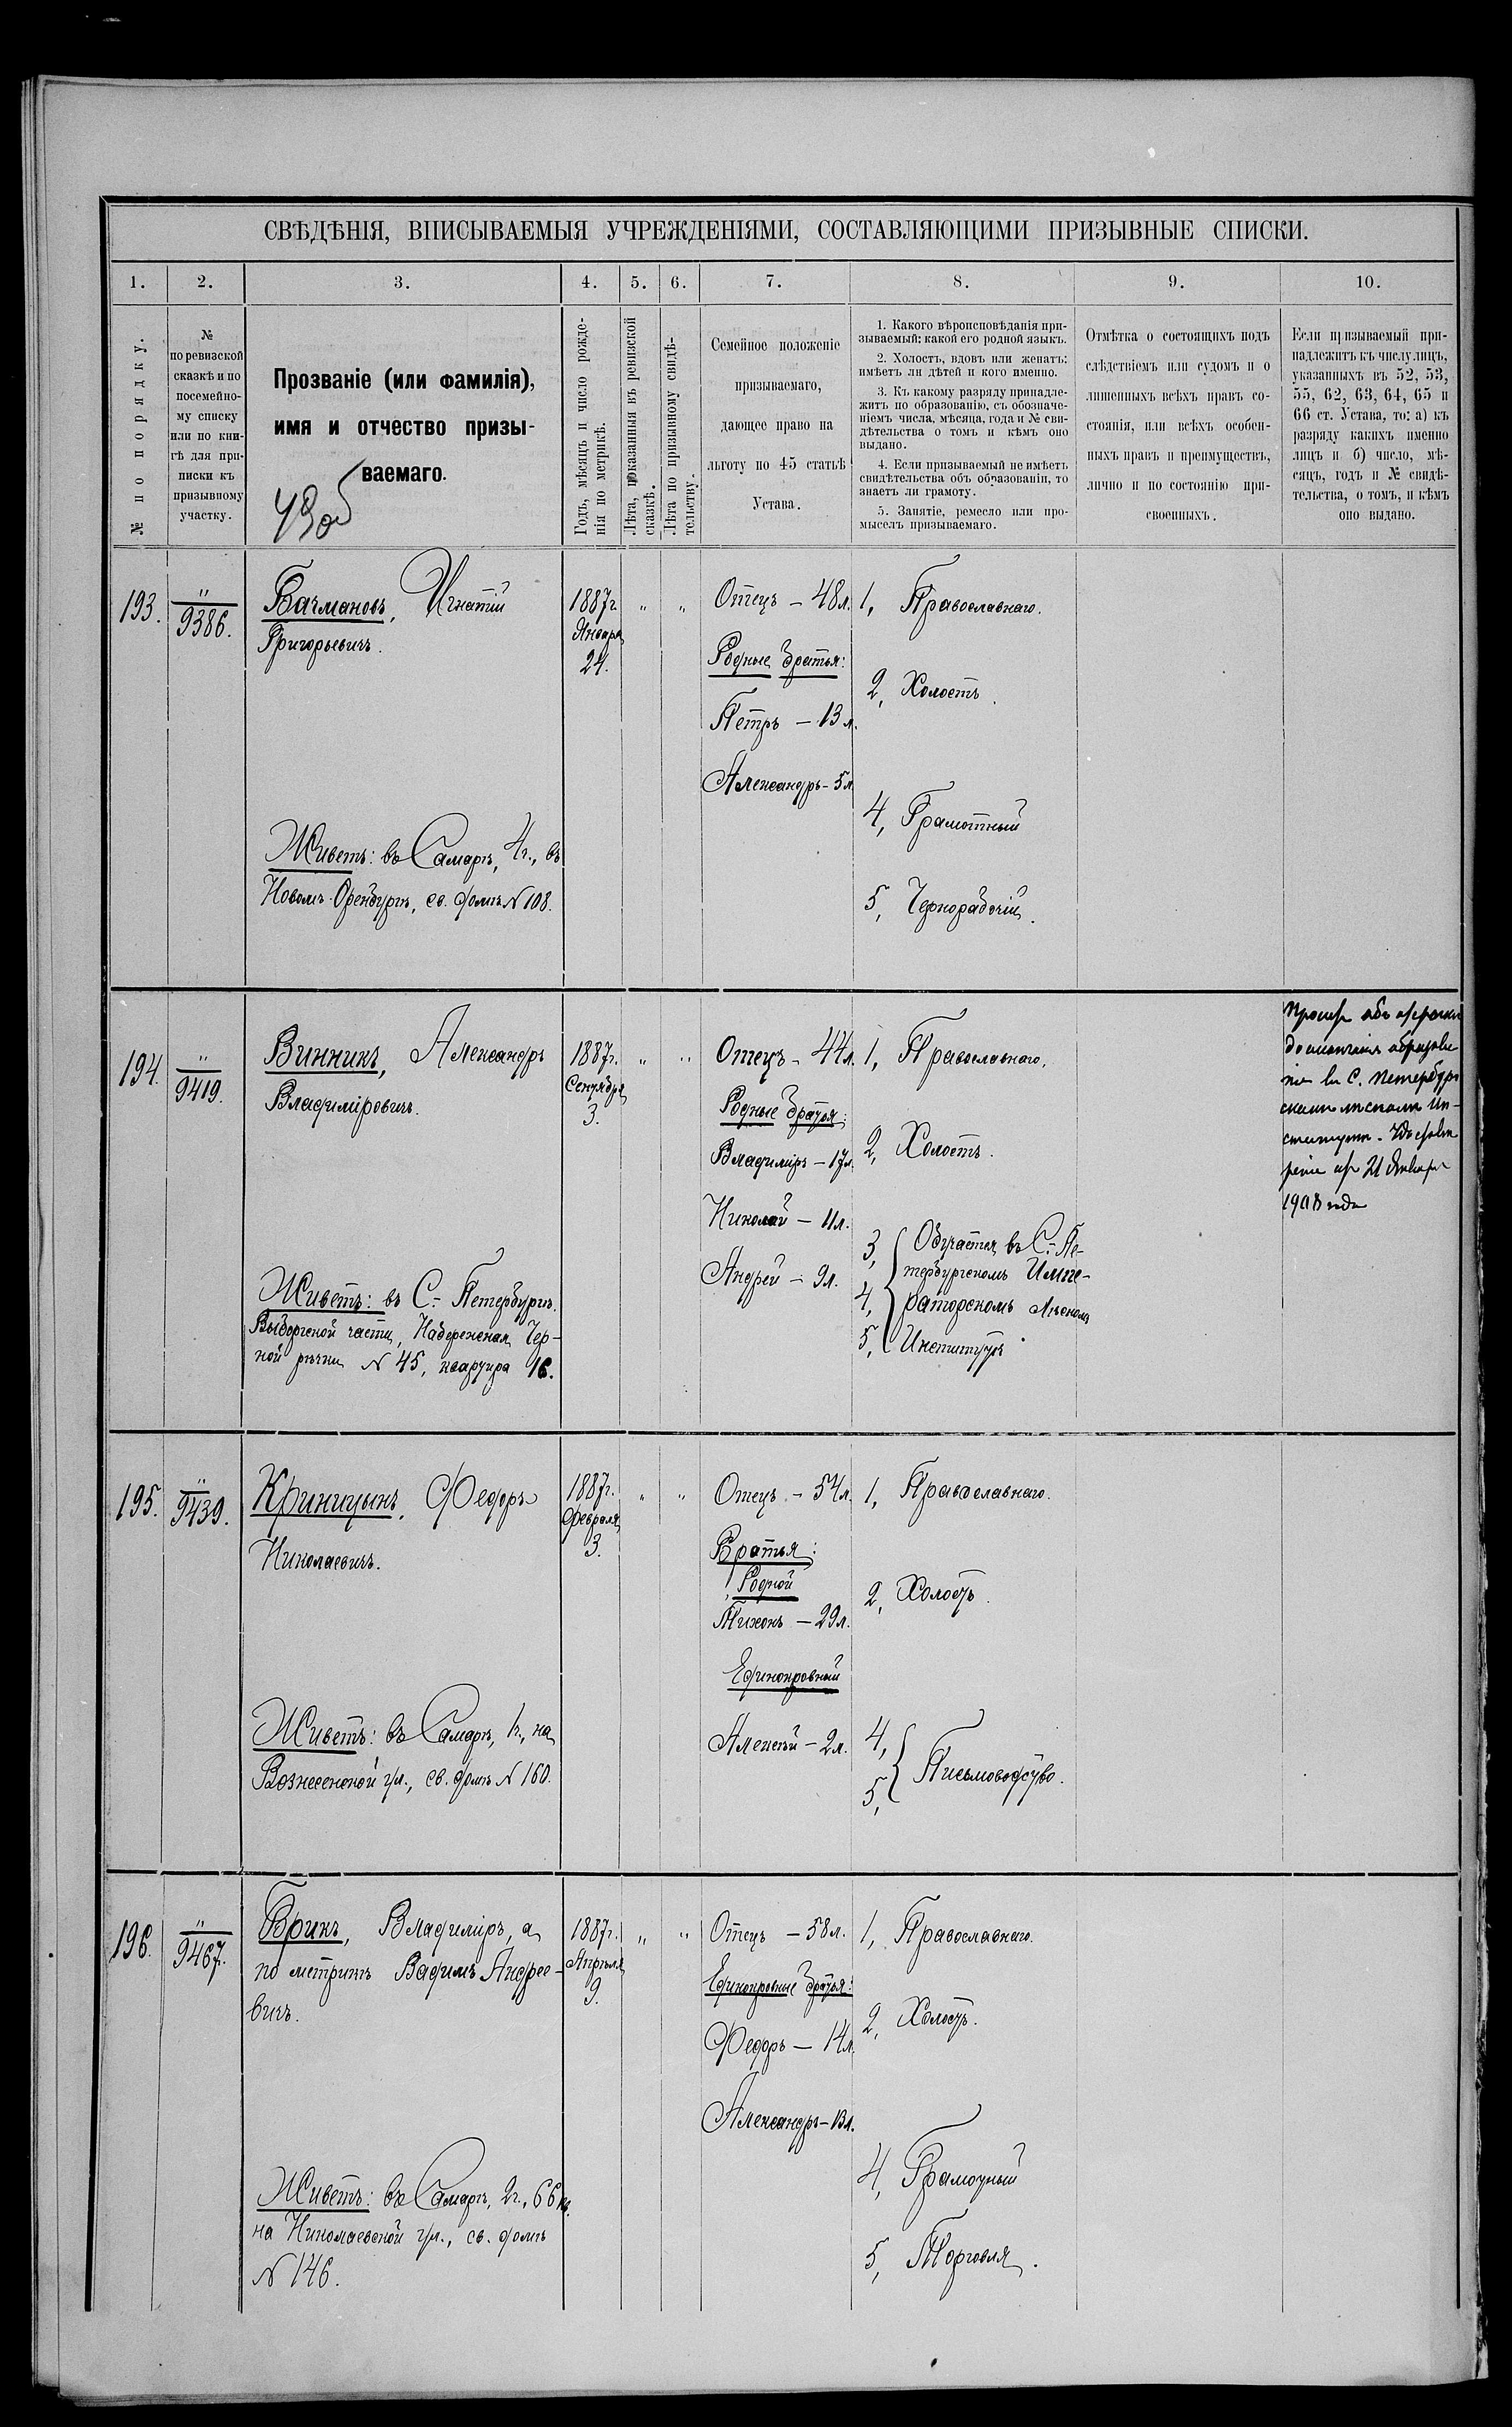 СВѢДѢНІЯ, ВПИСЫВАЕМЫЯ УЧРЕЖДЕНІЯМИ, СОСТАВЛЯЮЩИМИ ПРИЗЫВНЫЕ СПИСКИ.
1. 2. 3. 4. 5. 6. 7. 8. 9. 10.
№ по порядку.
№
по ревизской
сказкѣ и по
посемейно-
му списку
или по кни-
гѣ для при-
писки къ
призывному
участку.
Прозваніе (или фамилія),
имя и отчество призы-
ваемаго.
49об
Годъ, мѣсяцъ и число рожде-
нія по метрикѣ.
Лѣта, показанныя въ ревизской
сказкѣ.
Лѣта по призывному свидѣ-
тельству.
Семейное положеніе
призываемаго,
дающее право на
льготу по 45 статьѣ
Устава.
1. Какого вѣроисповѣданія при-
зываемый; какой его родной языкъ.
2. Холостъ, вдовъ или женатъ;
имѣетъ ли дѣтей и кого именно.
3. Къ какому разряду принадле-
житъ по образованію, съ обозначе-
ніемъ числа, мѣсяца, года и № сви-
дѣтельства о томъ и кѣмъ оно
выдано.
4. Если призываемый не имѣетъ
свидѣтельства объ образованіи, то
знаетъ ли грамоту.
5. Занятіе, ремесло или про-
мыселъ призываемаго.
Отмѣтка о состоящихъ подъ
слѣдствіемъ или судомъ и о
лишенныхъ всѣхъ правъ со-
стоянія, или всѣхъ особен-
ныхъ правъ и преимуществъ,
лично и по состоянію при-
своенныхъ.
Если призываемый при-
надлежитъ къ числу лицъ,
указанныхъ въ 52, 53,
55, 62, 63, 64, 65 и
66 ст. Устава, то: а) къ
разряду какихъ именно
лицъ и б) число, мѣ-
сяцъ, годъ и № свидѣ-
тельства, о томъ, и кѣмъ
оно выдано.
193.
"
9386.
Бачмановъ, Игнатій
Григорьевичъ.
Живетъ: въ Самарѣ, 4ч., въ
Новомъ-Оренбургѣ, св. домъ № 108.
1887г.
Января
24.
" "
Отецъ – 48л.
Родные братья:
Петръ – 13 л.
Александръ – 5л.
1, Православнаго.
2, Холостъ.
4, Грамотный
5, Чернорабочій.
194.
"
9419.
Винникъ, Александръ
Владиміровичъ.
Живетъ: въ С.-Петербургѣ.
Выборгской части, Набережная Чер-
ной рѣчки № 45, квартира 16.
1887г.
Сентября
3.
" "
Отецъ – 44л.
Родные братья:
Владиміръ – 17л.
Николай – 11л.
Андрей – 9л.
1, Православнаго.
2, Холостъ.
3, Обучается въ С.-Пе-
тербургскомъ Импе-
4, раторскомъ Лѣсномъ
5, Институтѣ.
объ отсрочки
до окончанія
въ С. Петербург
скомъ лѣсномъ Ин-
ститутѣ.
21 Января
1908 года
195.
"
9439.
Криницынъ, Федоръ
Николаевичъ.
Живетъ: въ Самарѣ, 1ч., на
Вознесенской ул., св. домъ № 160.
1887г.
Февраля
3.
" "
Отецъ – 54л.
Братья:
Родной
Тихонъ – 29л.
Единокровный
Алексѣй – 2л.
1, Православнаго.
2, Холостъ.
4,
5, Письмоводство.
196.
"
9467.
Бринъ, Владиміръ, а
по метрикѣ Вадимъ Андрее-
вичъ.
Живетъ: въ Самарѣ, 2ч., 66 кв.
на Николаевской ул., св. домъ
№ 146.
1887г.
Апрѣля
9.
" "
Отецъ – 58л.
Единокровные братья:
Федоръ – 14л.
Александръ – 13л.
1, Православнаго.
2, Холостъ.
4, Грамотный
5, Торговля.